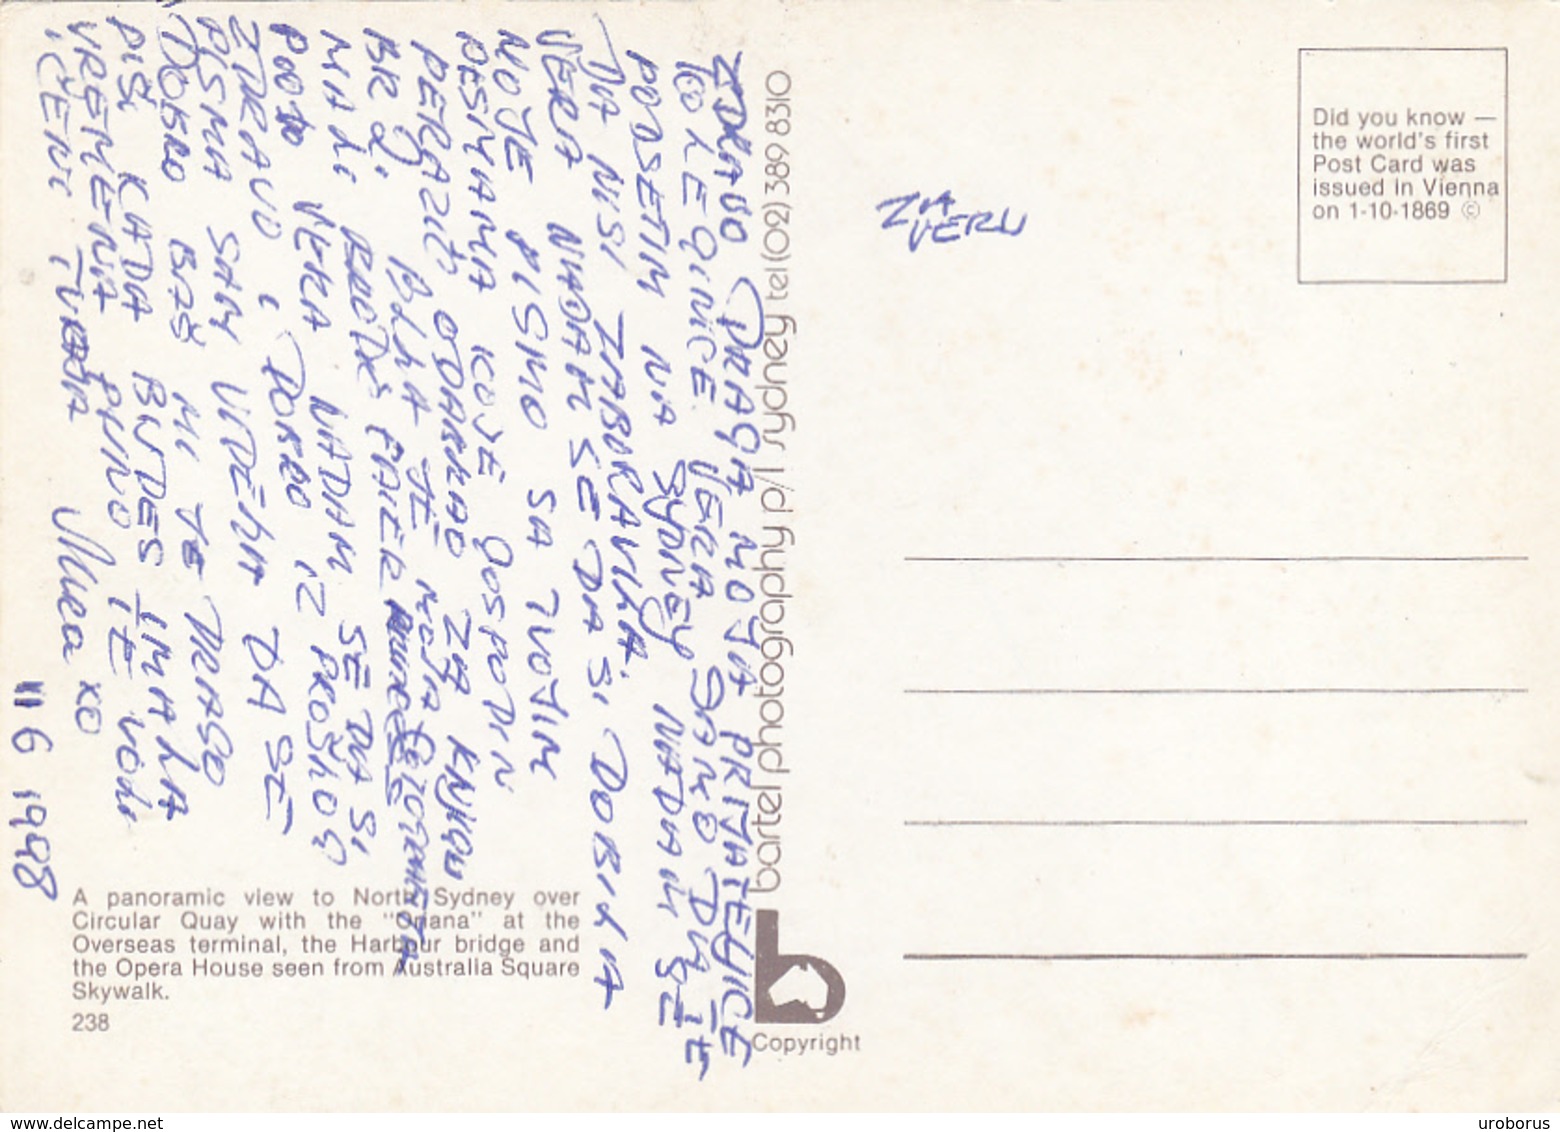 ZDRAVO DRAGA MOJA PRIJATELJICE
KOLEGINICE VERA SAMO DA TE
PODSETIM NA SYDNEY NADAM SE
DA NISI ZABORAVILA.
VERA NADAM SE DA SI DOBILA
MOJE PISMO SA TVOJIM
PESMAMA KOJE GOSPODIN
PERAZIĆ ODABRAO ZA KNJIGU
BR 2. BILA JE MOJA FOTOGRAFIJA
MALI
POOTO VERA NADAM SE DA SI
ZDRAVO I DOBRO IZ PROŠLOG
PISMA SAM VIDELA DA SE
DOBRO BAŠ MI JE DRAGO
PIŠI KADA BUDES IMALA
VREMENA PUNO TE VOLI
I CENI TVOJA
xo
11 6 1998
ZA
VERU
Did you know —
the world's first
Post Card was
issued in Vienna
on 1-10-1869 ©
bartel photography p/l sydney tel (02) 389 8310
b
Copyright
A panoramic view to North Sydney over
Circular Quay with the "Oriana" at the
Overseas terminal, the Harbour bridge and
the Opera House seen from Australia Square
Skywalk.
238
uroborus